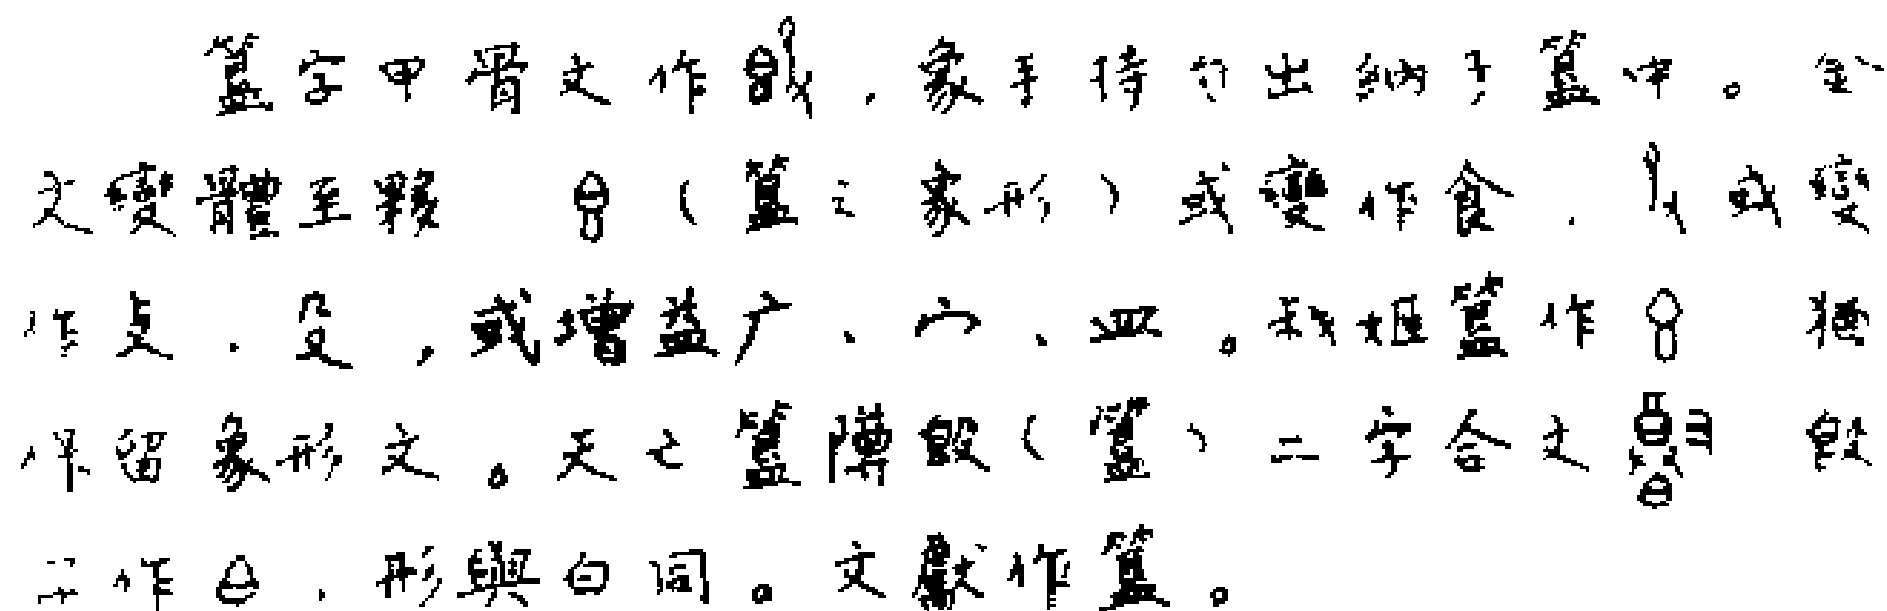 簋字甲骨文作,象手持匕出納于簋中。金
文變體至夥(簋之象形)或變作食.或變
作攴.殳,或增益广、宀、皿。姬簋作猶
保留象形文。天亡簋障𣪘(簋)二字合文𣪘
字作,形與白同。文獻作簋。